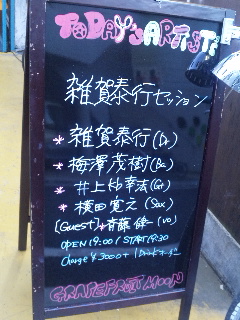 TODAY'S ARTIST
雑賀泰行セッション
* 雑賀泰行(Dr)
* 梅澤茂樹(Ba)
* 井上 幸法(Gt)
* 横田寛之(Sax)
[Guest] * 斉藤 (Vo)
OPEN 19:00 / START 19:30
Charge ¥3000+1Drinkオーダー
GRAPEFRUIT MOON